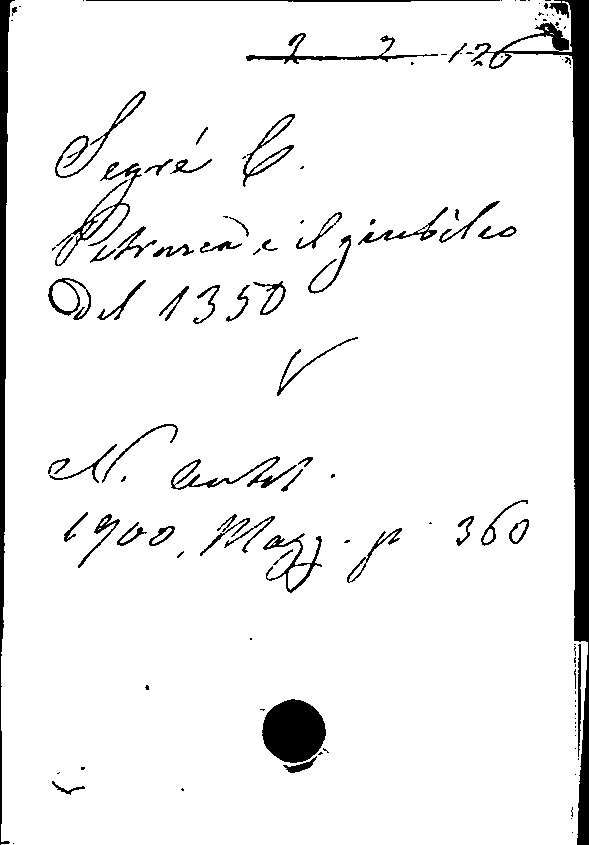 2 2. 126
Segré C.
Petrarca e il giubileo
del 1350
N. Antol.
1900, Magg. p. 360